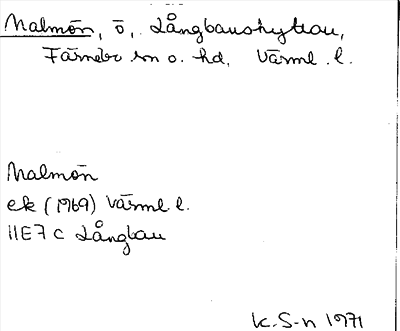 Malmön, ö, Långbanshyttan,
Färnebo sn o. hd, Värml. l.
Malmön
ek (1969) Värml l.
11E7c Långban
K.S-n 1971